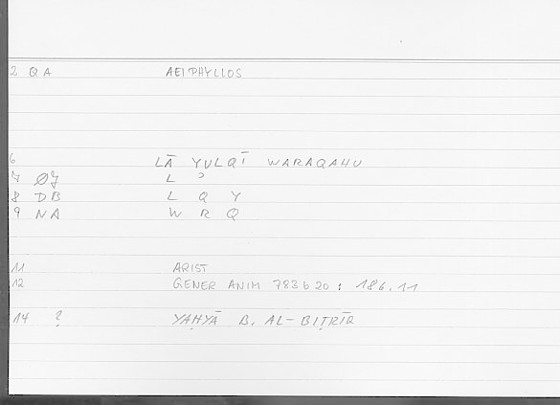 2 QA AEIPHYLLOS
6 LĀ YULQĪ WARAQAHU
7 ØJ L ʾ
8 DB L Q Y
9 NA W R Q
11 ARIST
12 GENER ANIM 783b20 : 186.11
14 ? YAḤYĀ B. AL-BIṬRĪQ